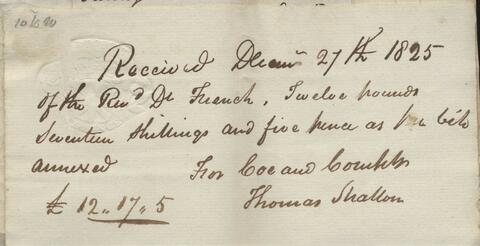 Received Decemr 27th 1825
of the Revd Dr French, Twelve pounds
Seventeen Shillings and five pence as per
annexed For Coe and
£ 12„17„5 Thomas Shallon